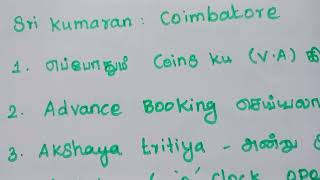 Sri Kumaran : Coimbatore
1. எப்போதும் Coins ku (V.A)
2. Advance Booking செய்யலா
3. Akshaya tritiya - அன்று
clock ope